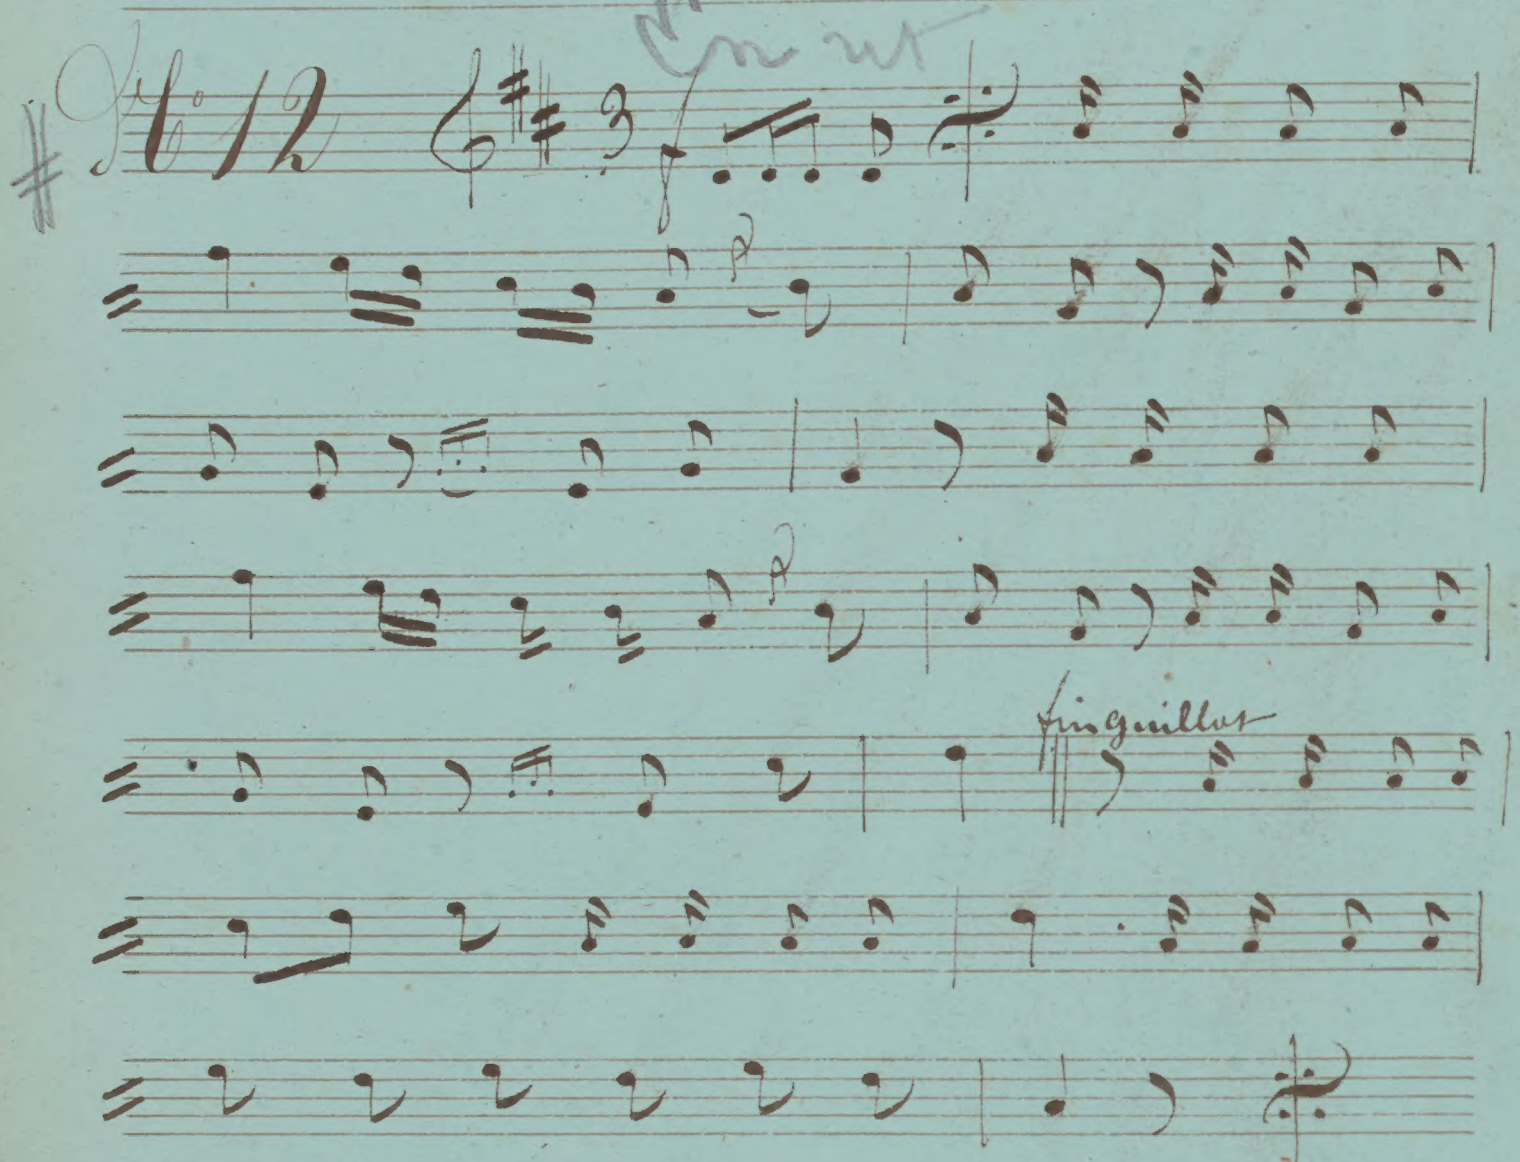 En ut
N° 12
3
f
p
p
fin guillot